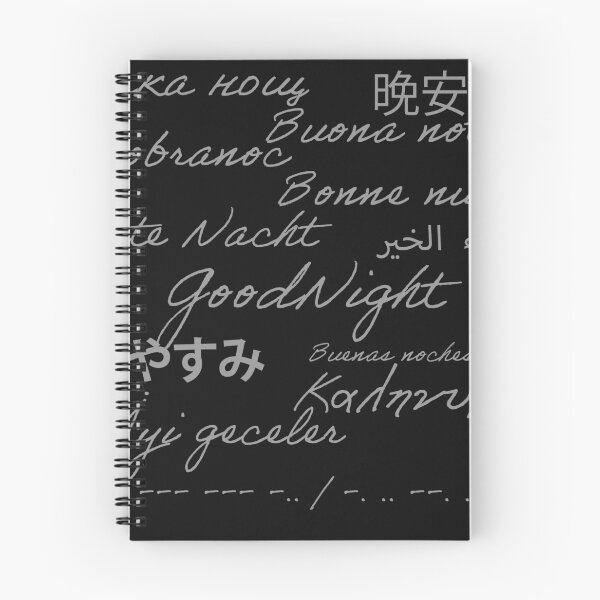 ка нощ
晚安
Buona no
obranoc
Bonne nu
te Nacht
ء الخير
GoodNight
やすみ
Buenas noches
Καληνυ
yi geceler
--- --- -.. / -. .. --. .